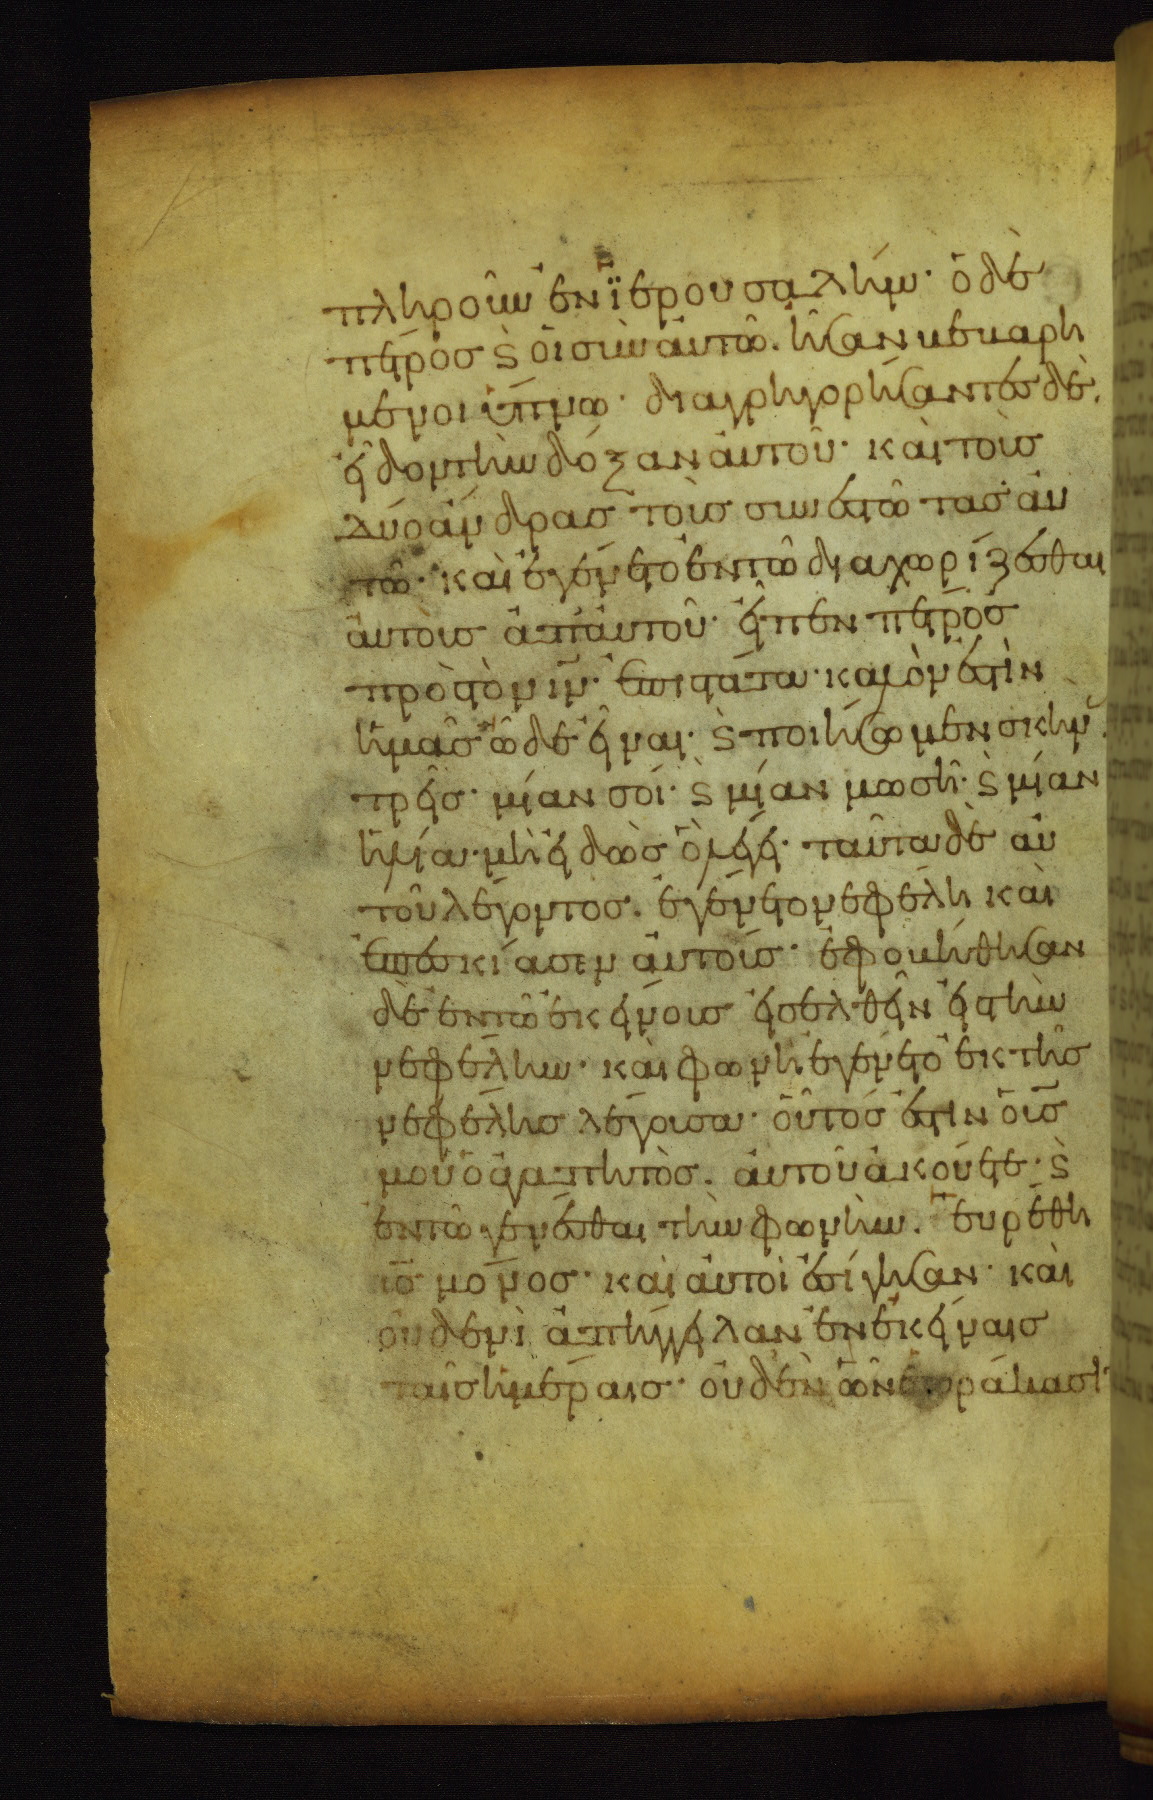 πληροῦν ἐν ϊερουσαλήμ· ὁ δὲ
πέτρος ϛ̀ οἱ σὺν ἀυτῶ. ἦσαν βεβαρη
μένοι ὕπνω· διαγρηγορήσαντες δὲ.
εἶδον τὴν δόξαν ἀυτοῦ· καὶ τοὺς
δύο ἄνδρας τοὺς συνεστῶτας ἀυ
τῶ· καὶ ἐγένετο ἐν τῶ διαχωρίζεσθαι
ἀυτοὺς ἀπ' ἀυτοῦ· εἶπεν πέτρος
πρὸς τὸν ιν̄· ἐπιστάτα· καλόν ἐστὶν
ἡμᾶς ὧδε εἶναι· ϛ̀ ποιήσωμεν σκην
τρεῖς· μίαν σοί· ϛ̀ μίαν μωσῆ· ϛ̀ μίαν
ἠλία· μὴ εἰδὼς ὃ λέγει· ταῦτα δὲ ἀυ
τοῦ λέγοντος. ἐγένετο νεφέλη καὶ
ἐπεσκίασεν ἀυτούς· ἐφοβήθησαν
δὲ ἐν τῶ ἐκείνους εἰσελθεῖν εἰς τὴν
νεφέλην· καὶ φωνὴ ἐγένετο ἐκ τῆς
νεφέλης λέγουσα· οὗτός ἐστιν ὁ υς̄
μου ὁ ἀγαπητὸς. ἀυτοῦ ἀκούετε· ϛ̀
ἐν τῶ γενέσθαι τὴν φωνὴν. ἑυρέθη
ις̄ μόνος· καὶ ἀυτοὶ ἐσίγησαν· καὶ
ὀυδενὶ ἀπήγγειλαν ἐν ἐκείναις
ταῖς ἡμέραις· ὀυδὲν ὧν ἑωράκασι